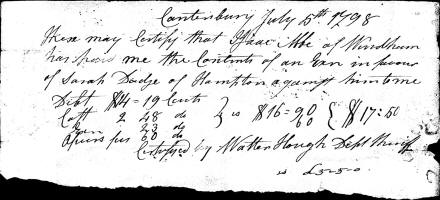 Canterbury July 5th 1798
These may Certify that Isaac Abbe of Windham
has paid me the Contents of an Exn in favour
of Sarah Dodge of Hampton against him to me
Debt $14=19 Cents
Cost 2 48 do } is $16=90 { $17:50
Exn 23 do 60
Officers fees 60 do
Certifyed by Walter Hough Debt Sheriff
is £5.5.0.